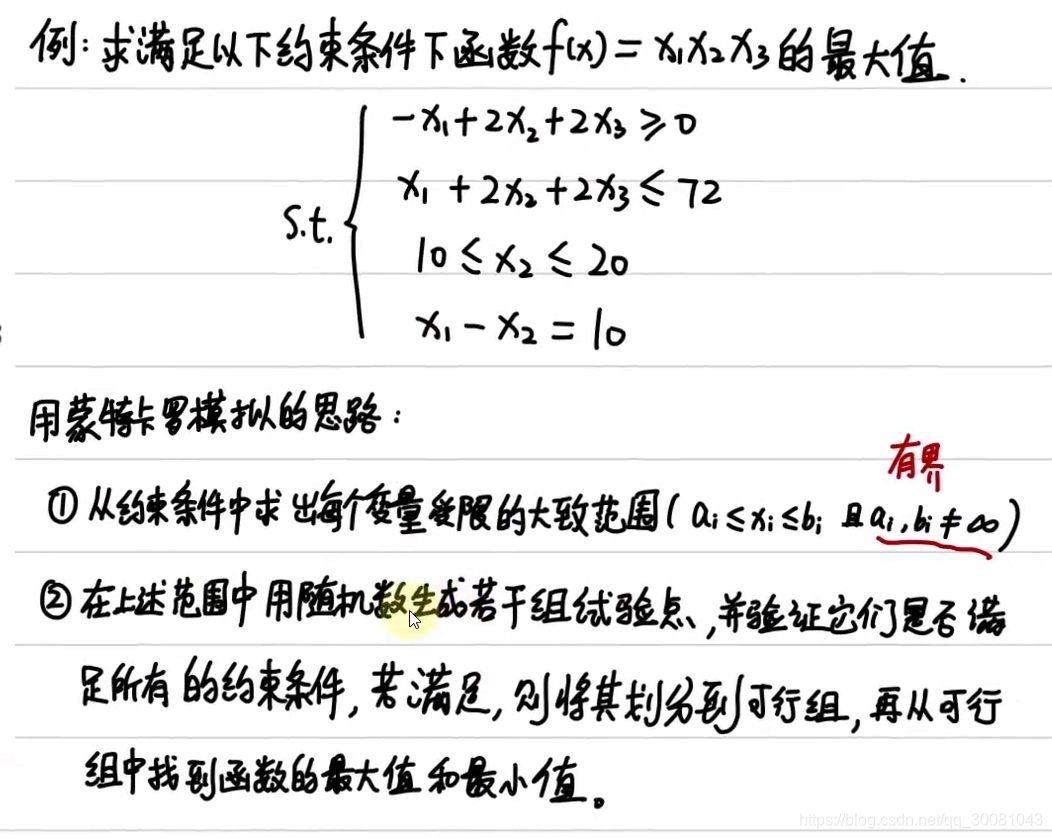 例: 求满足以下约束条件下函数f(x) = x₁x₂x₃的最大值.
-x₁+2x₂+2x₃ ≥ 0
x₁ + 2x₂ + 2x₃ ≤ 72
S.t.
10 ≤ x₂ ≤ 20
x₁ - x₂ = 10
用蒙特卡罗模拟的思路:
有界
① 从约束条件中求出每个变量受限的大致范围( aᵢ ≤ xᵢ ≤ bᵢ 且 aᵢ, bᵢ ≠ ∞)
② 在上述范围中用随机数生成若干组试验点、,并验证它们是否满
足所有的约束条件, 若满足, 则将其划分到可行组, 再从可行
组中找到函数的最大值和最小值。
https://blog.csdn.net/qq_30081043